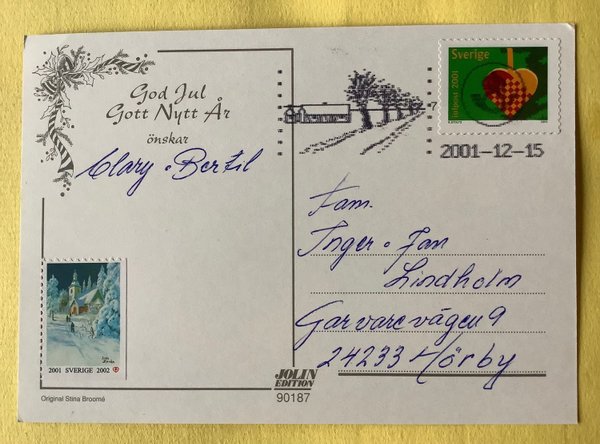 God Jul
Gott Nytt År
önskar
Clary o Bertil
2001 SVERIGE 2002
Original Stina Broomé
JOLIN
EDITION
90187
Sverige
Julpost 2001
7
2001-12-15
Fam.
Inger o Jan
Lindholm
Garvarevägen 9
24233 Hörby